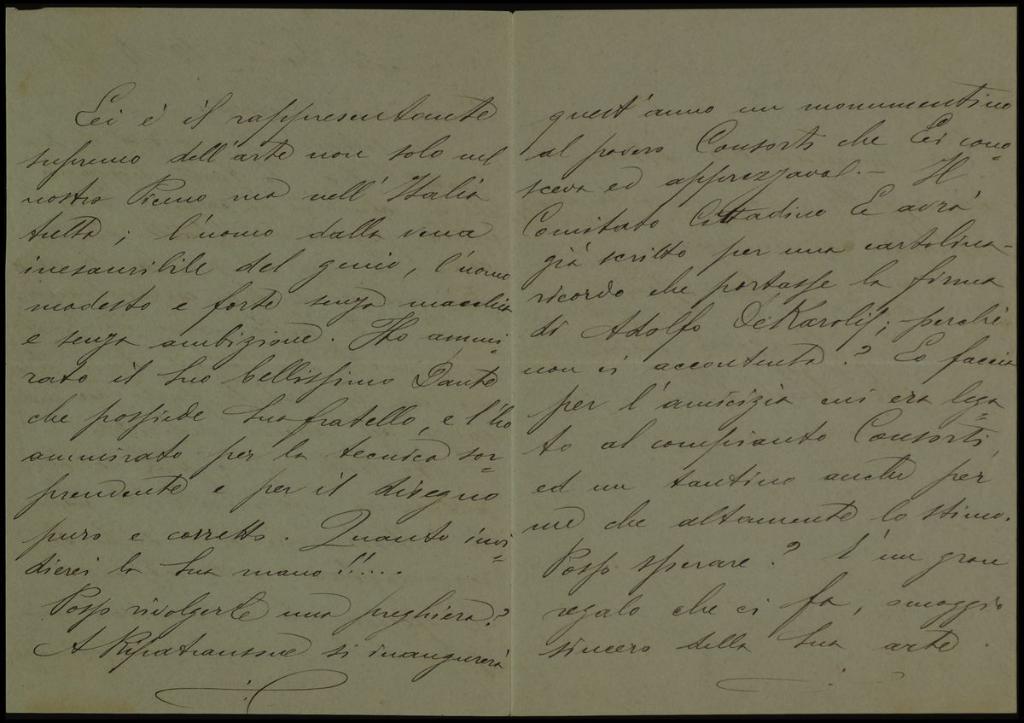 Lei è il rappresentante
supremo dell'arte non solo nel
nostro Piceno ma nell'Italia
tutta; l'uomo dalla vena
inesauribile del genio, l'uomo
modesto e forte senza macchia
e senza ambizione. Ho ammi-
rato il suo bellissimo Dante
che possiede suo fratello, e l'ho
ammirato per la tecnica sor=
prendente e per il disegno
puro e corretto. Quanto invi=
dierei la sua mano!!....
Posso rivolgerle una preghiera?
A Ripatransone si inaugurerà
quest'anno un monumentino
al povero Consorti che Lei cono=
sceva ed apprezzava. – Il
Comitato Cittadino Le avrà
già scritto per una cartolina-
ricordo che portasse la firma
di Adolfo De Karolis; perché
non ci accontenta? Lo faccia
per l'amicizia cui era lega=
to al compianto Consorti,
ed un tantino anche per
me che altamente lo stimo.
Posso sperare? È un gran
regalo che ci fa, omaggio
sincero della sua arte.